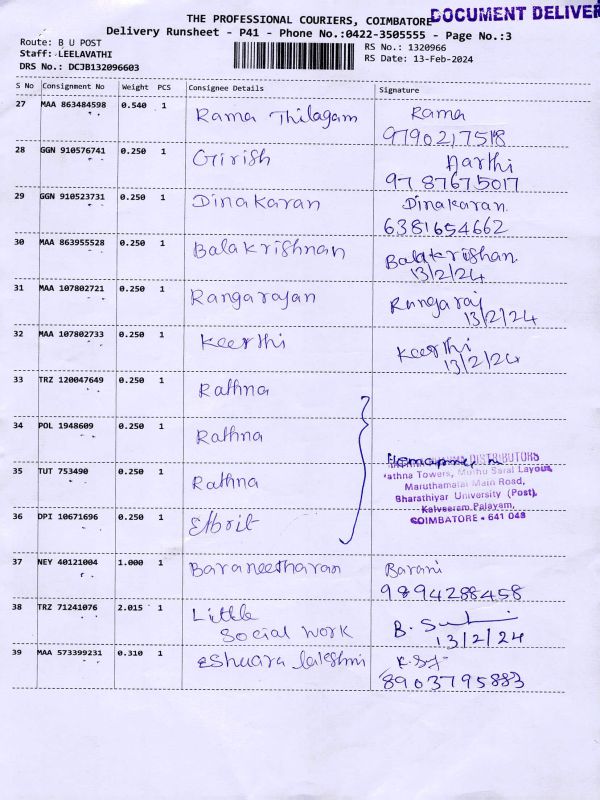 THE PROFESSIONAL COURIERS, COIMBATORE DOCUMENT DELIVER
Delivery Runsheet - P41 - Phone No.:0422-3505555 - Page No.:3
Route: B U POST
Staff: LEELAVATHI
DRS No.: DCJB132096603
RS No.: 1320966
RS Date: 13-Feb-2024
S No Consignment No Weight PCS Consignee Details Signature
27 MAA 863484598 0.540 1 Rama Thilagam Rama
9790217518
28 GGN 910576741 0.250 1 Girish Aarthi
9787675017
29 GGN 910523731 0.250 1 Dinakaran Dinakaran
6381654662
30 MAA 863955528 0.250 1 Balakrishnan Balakrishan
13/2/24
31 MAA 107802721 0.250 1 Rangarajan Rangaraj
13/2/24
32 MAA 107802733 0.250 1 Keerthi Keerthi
13/2/24
33 TRZ 120047649 0.250 1 Rathna
34 POL 1948609 0.250 1 Rathna
DISTRIBUTORS
35 TUT 753490 0.250 1 Rathna
Rathna Towers, Muthu Saral Layout,
Maruthamalai Main Road,
Bharathiyar University (Post),
Kalveeram Palayam,
COIMBATORE - 641 046
36 DPI 10671696 0.250 1
37 NEY 40121004 1.000 1 Baraneetharan Barani
9894288458
38 TRZ 71241076 2.015 1 Little
Social Work
13/2/24
39 MAA 573399231 0.310 1 Eshwara lakshmi
8903795883